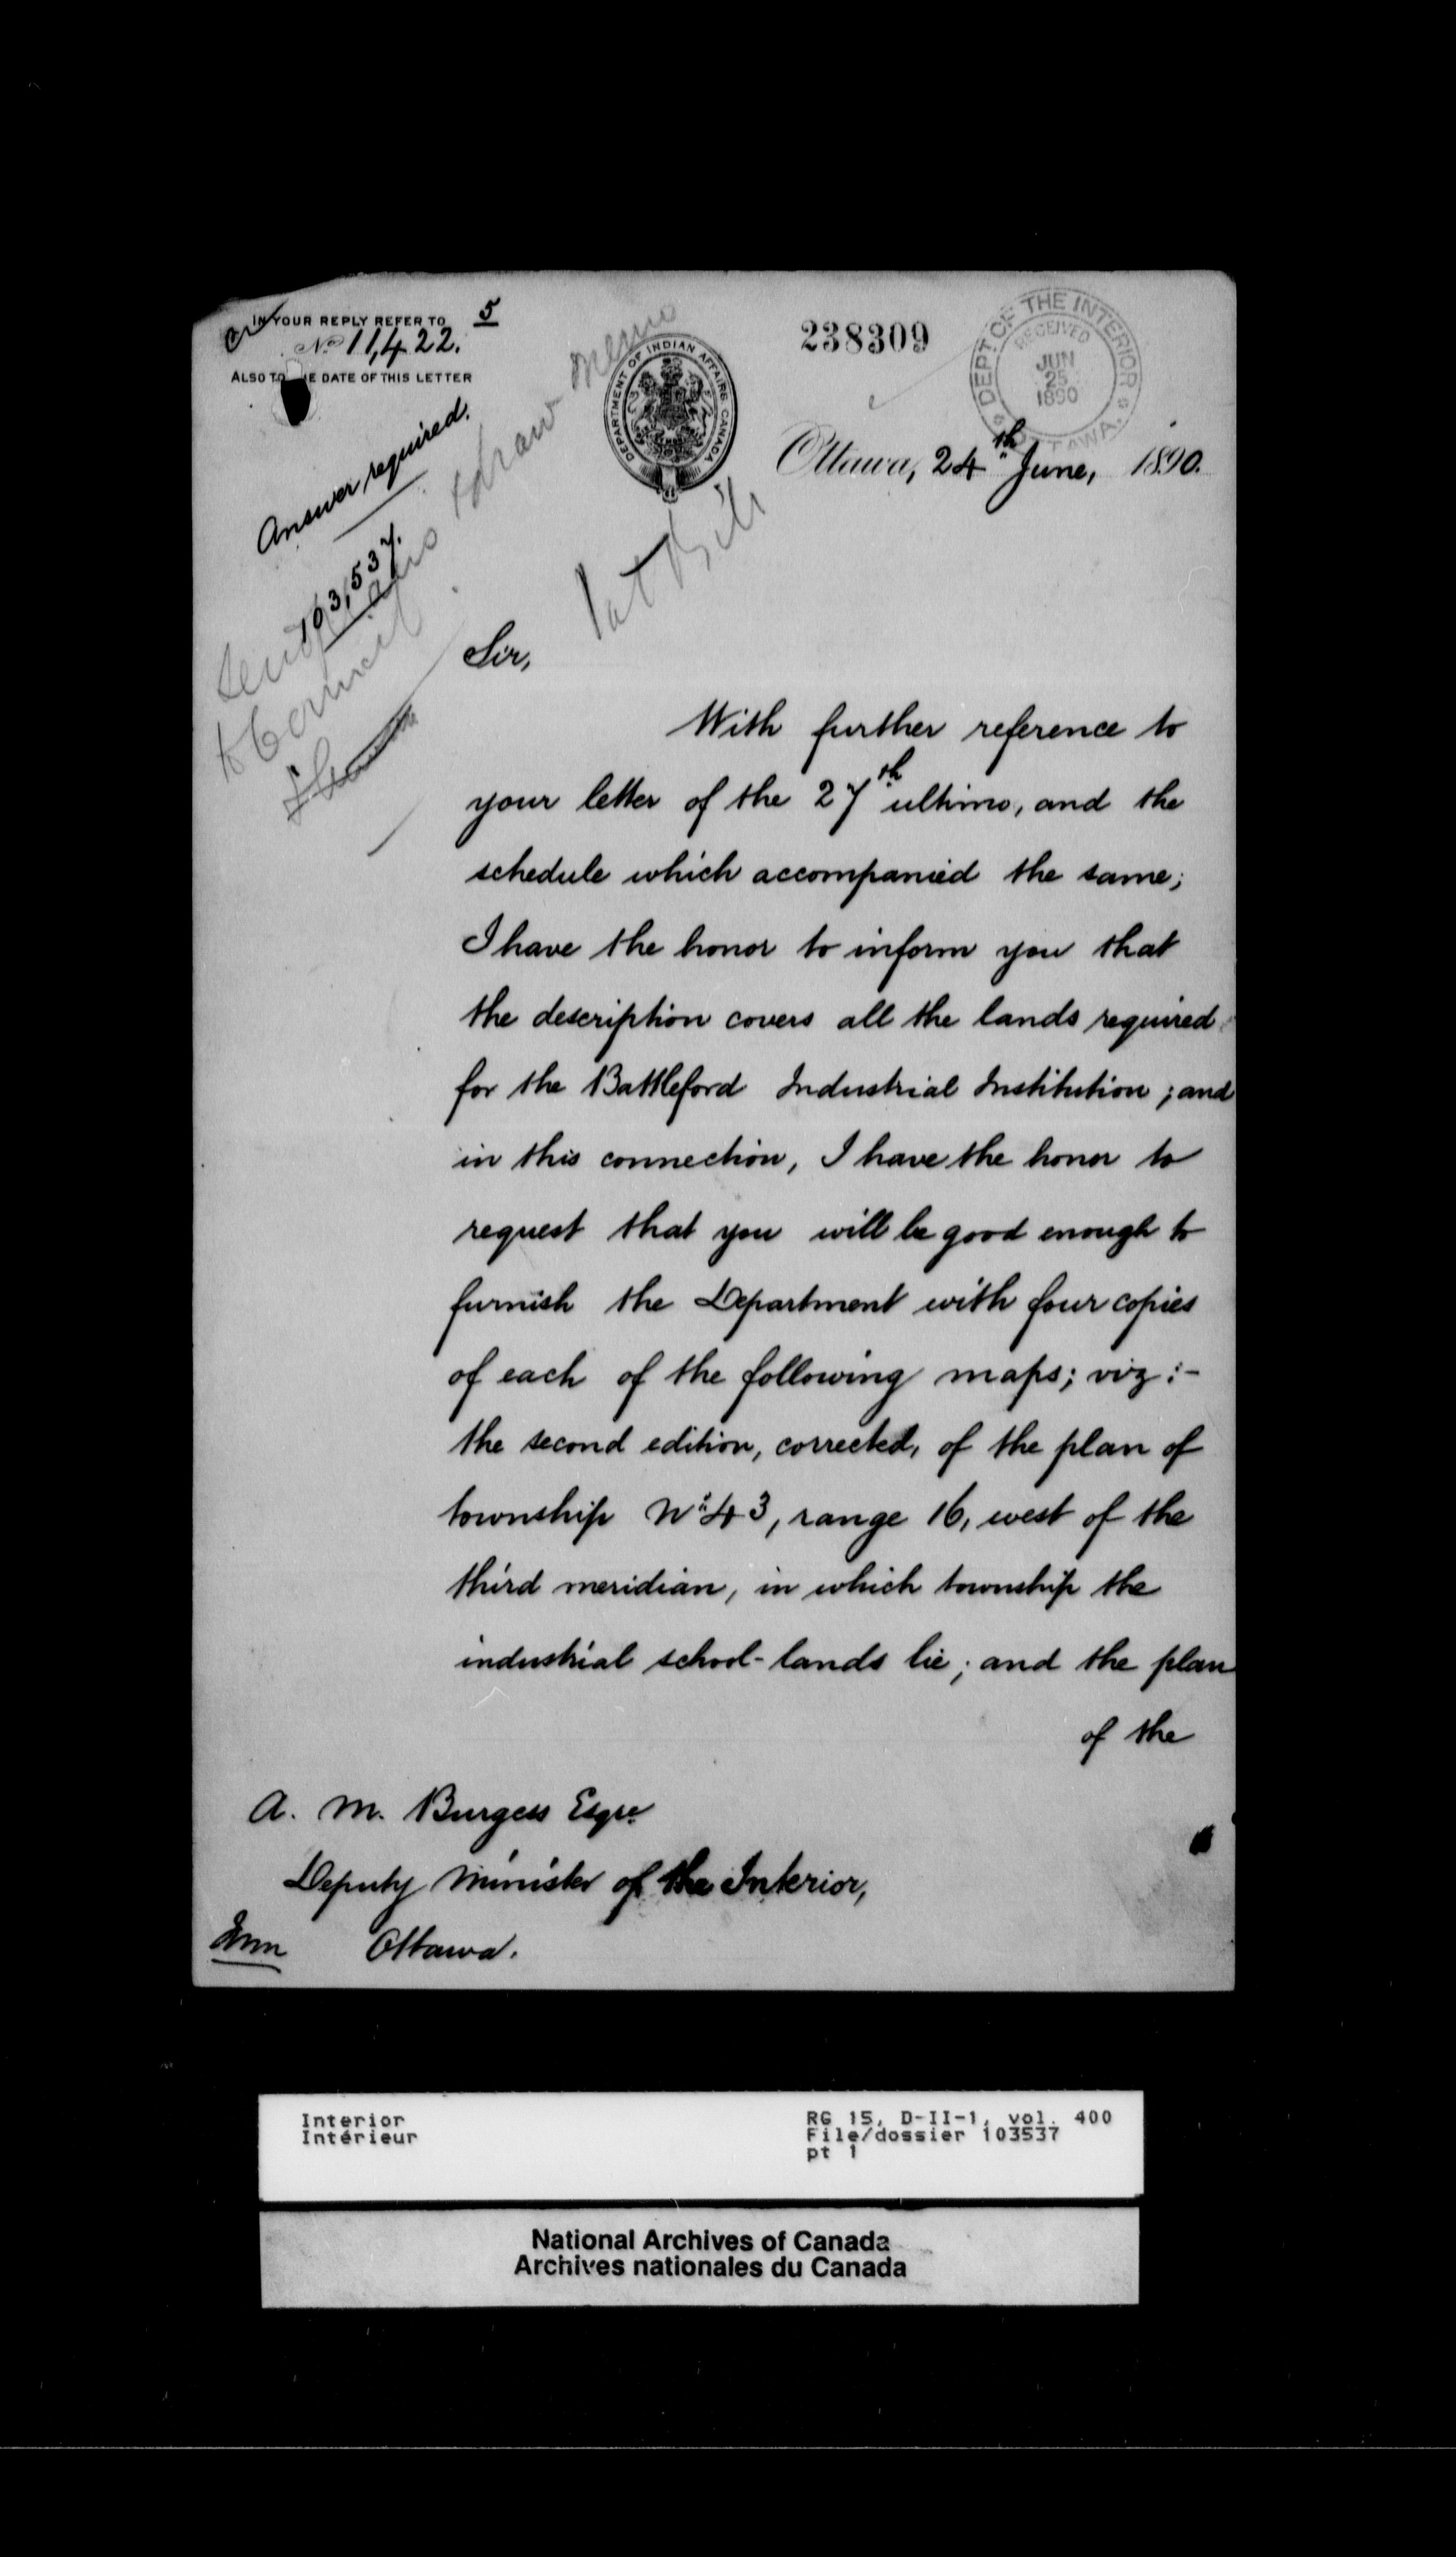 IN YOUR REPLY REFER TO
5
No 11,422.
ALSO TO THE DATE OF THIS LETTER
238309
DEPT. OF THE INTERIOR
RECEIVED
JUN
25
1890
OTTAWA.
DEPARTMENT OF INDIAN AFFAIRS CANADA
Ottawa, 24th June, 1890.
Answer required.
103,537.
draw memo
Sir,
With further reference to
your letter of the 27th ultimo, and the
schedule which accompanied the same;
I have the honor to inform you that
the description covers all the lands required
for the Battleford Industrial Institution; and
in this connection, I have the honor to
request that you will be good enough to
furnish the Department with four copies
of each of the following maps; viz:-
the second edition, corrected, of the plan of
township No 43, range 16, west of the
third meridian, in which township the
industrial school-lands lie; and the plan
of the
A. M. Burgess Esqre
Deputy Minister of the Interior,
Ottawa.
Interior
Intérieur
RG 15, D-II-1, vol. 400
File/dossier 103537
pt 1
National Archives of Canada
Archives nationales du Canada